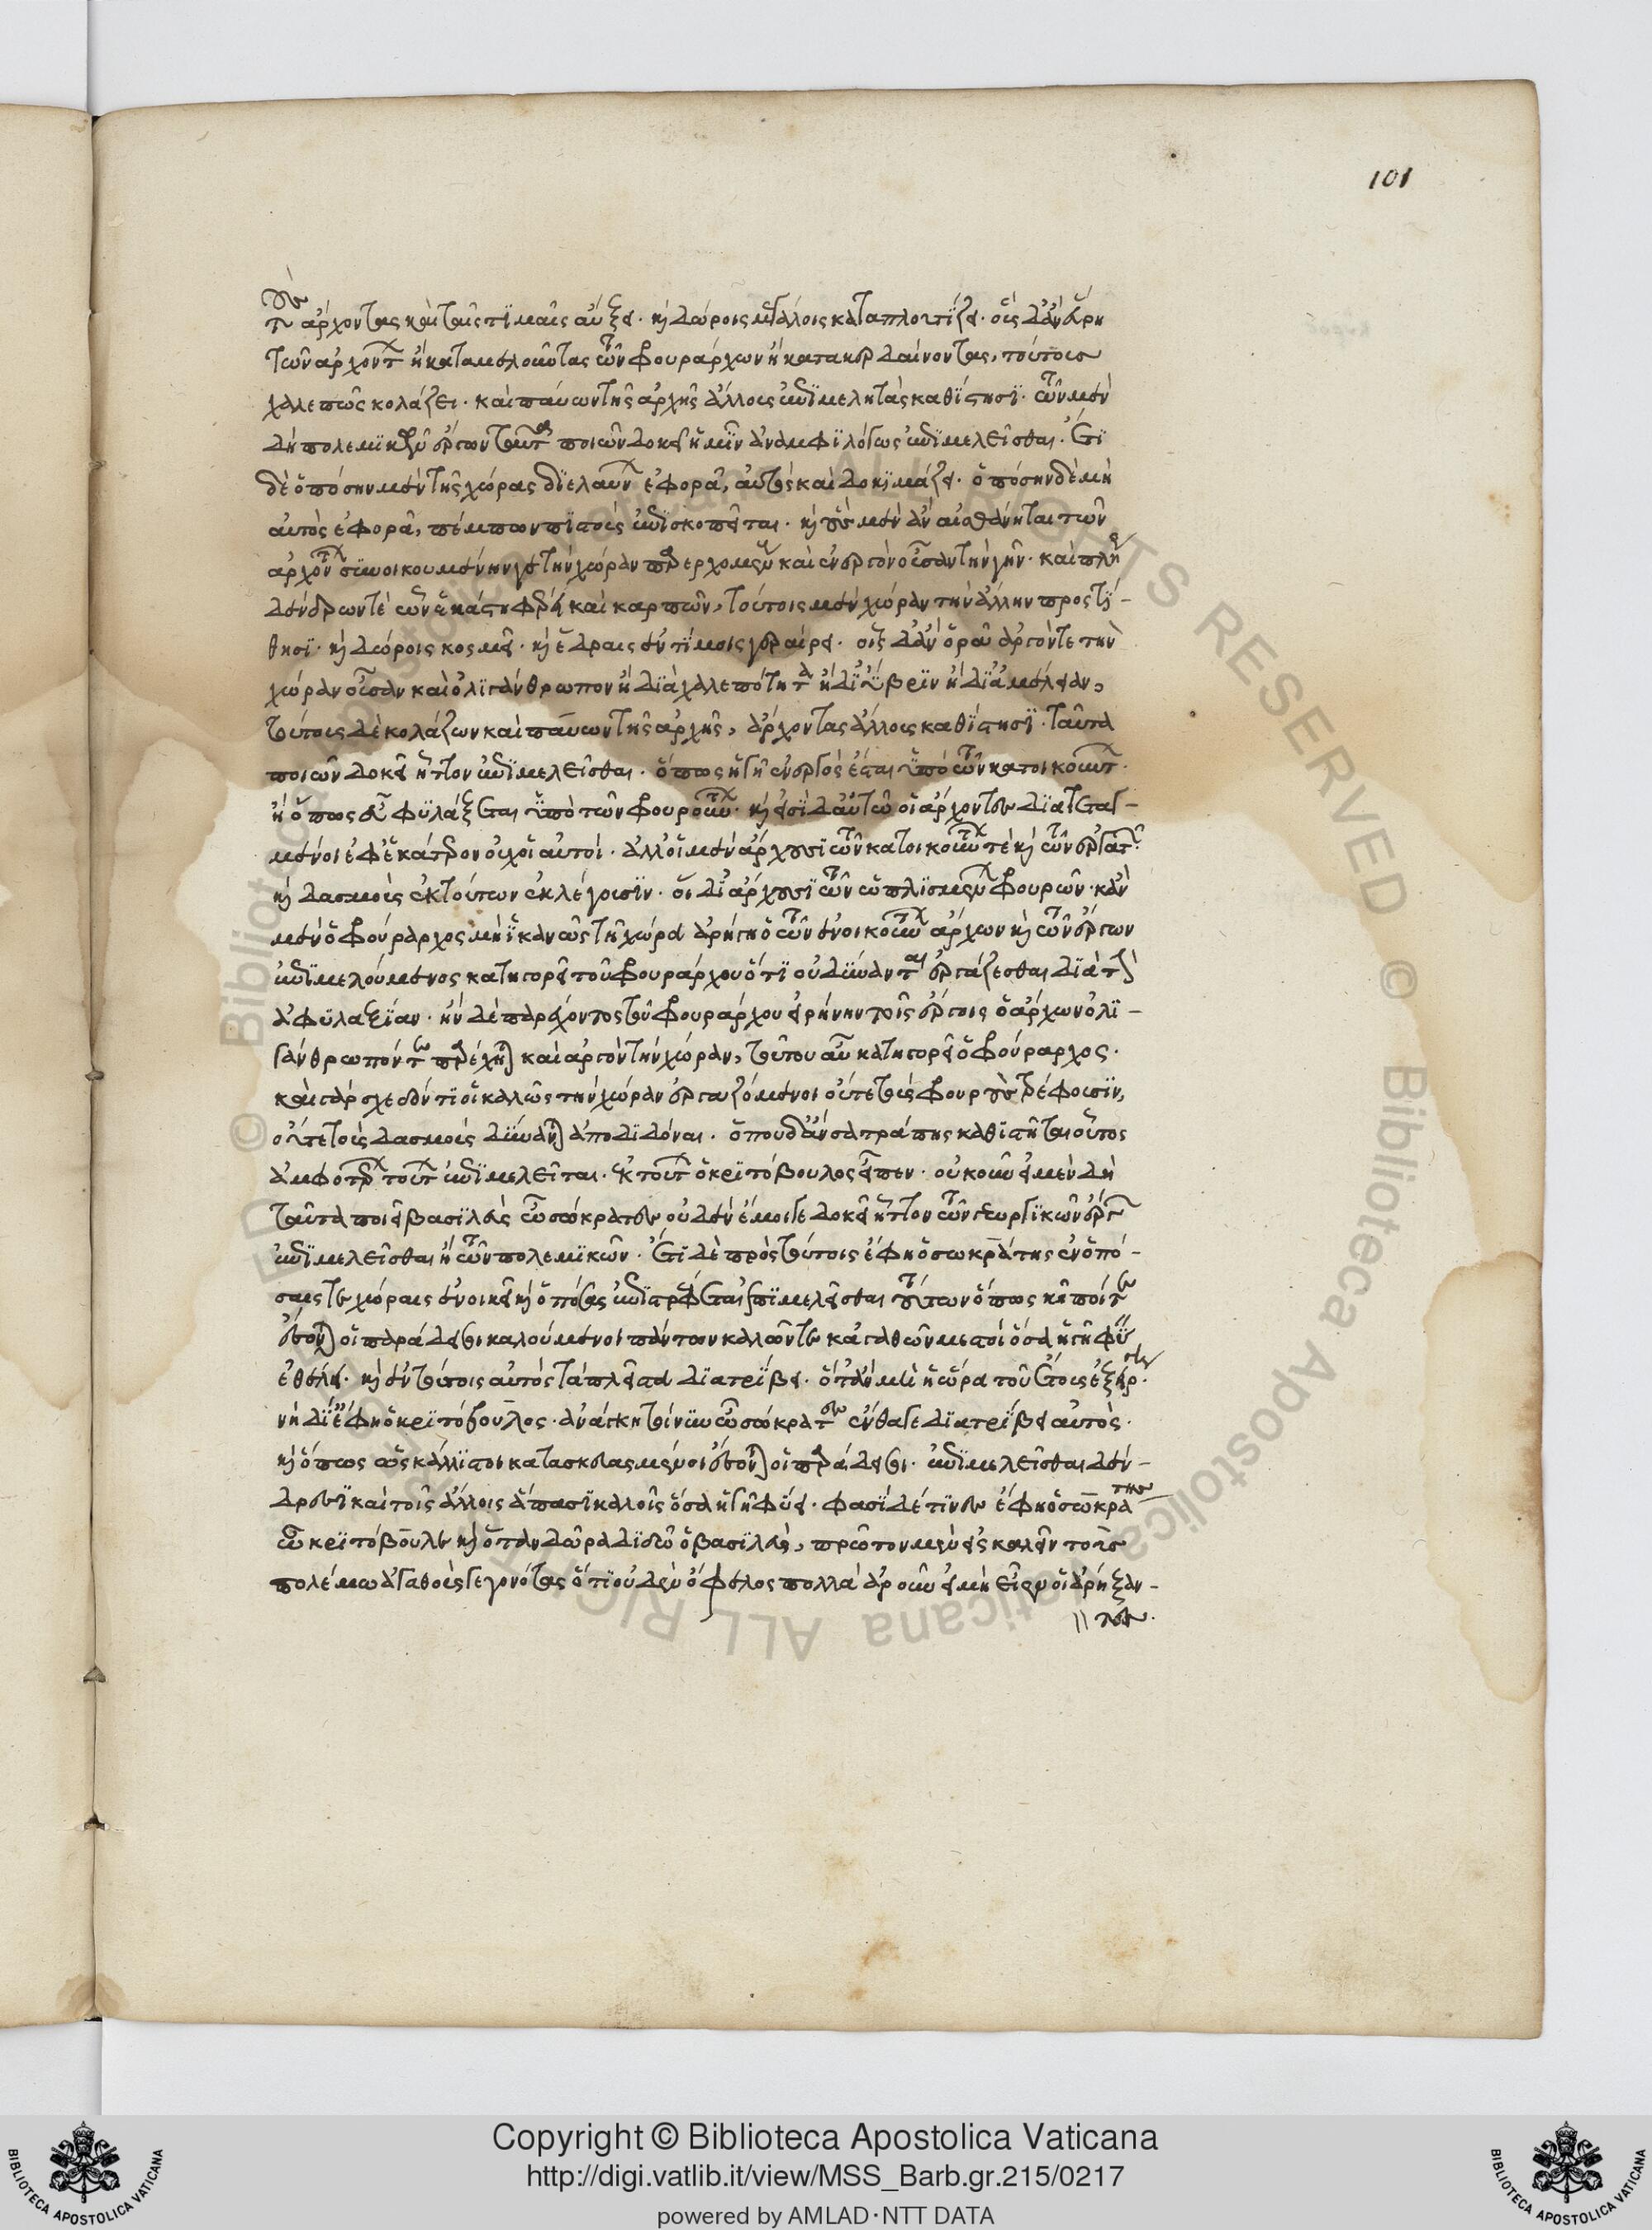 101
τοὺς ἄρχοντας καὶ ταῖς τιμαῖς αὔξει· καὶ δώροις μεγάλοις καταπλουτίζει· οὓς δ' ἂν εὕρῃ
τῶν ἀρχόντων ἢ καταμελοῦντας τῶν φρουράρχων ἢ κατακερδαίνοντας, τούτους
χαλεπῶς κολάζει· καὶ παύων τῆς ἀρχῆς ἄλλους ἐπιμελητὰς καθίστησι· τῶν μὲν
δὴ πολεμικῶν ἔργων ταῦτα ποιῶν δοκεῖ ἡμῖν ἀναμφιλόγως ἐπιμελεῖσθαι· ἔτι
δὲ ὁπόσην μὲν τῆς χώρας διελαύνων ἐφορᾷ, αὐτὸς καὶ δοκιμάζει· ὁπόσην δὲ μὴ
αὐτὸς ἐφορᾷ, πέμπων πιστοὺς ἐπισκοπεῖται· καὶ οὓς μὲν ἂν αἰσθάνηται τῶν
ἀρχόντων συνοικουμένην τε τὴν χώραν παρεχομένους καὶ ἐνεργὸν οὖσαν τὴν γῆν· καὶ πλήρη
δένδρων τὲ ὧν ἑκάστη φέρει καὶ καρπῶν, τούτοις μὲν χώραν τὴν ἄλλην προστί-
θησι· καὶ δώροις κοσμεῖ· καὶ ἕδραις ἐντίμοις γεραίρει· οἷς δ' ἂν ὁρᾷ ἀργόν τε τὴν
χώραν οὖσαν καὶ ὀλιγάνθρωπον ἢ διὰ χαλεπότητα ἢ δι' ὕβριν ἢ δι' ἀμέλειαν,
τούτους δὲ κολάζων καὶ παύων τῆς ἀρχῆς, ἄρχοντας ἄλλους καθίστησι· ταῦτα
ποιῶν δοκεῖ ἧττον ἐπιμελεῖσθαι· ὅπως ἡ γῆ ἐνεργὸς ἔσται ὑπὸ τῶν κατοικούντων·
ἢ ὅπως εὖ φυλάξεται ὑπὸ τῶν φρουρούντων· καὶ εἰσὶ δ' αὐτῷ οἱ ἄρχοντες διατεταγ-
μένοι ἐφ' ἑκάτερον οὐχ οἱ αὐτοί· ἀλλ' οἱ μὲν ἄρχουσι τῶν κατοικούντων τὲ καὶ τῶν ἐργατῶν·
καὶ δασμοὺς ἐκ τούτων ἐκλέγουσιν· οἱ δ' ἄρχουσι τῶν ὡπλισμένων φρουρῶν· κἂν
μὲν ὁ φρούραρχος μὴ ἱκανῶς τῇ χώρᾳ ἀρήγῃ ὁ τῶν ἐνοικούντων ἄρχων καὶ τῶν ἔργων
ἐπιμελούμενος κατηγορεῖ τοῦ φρουράρχου ὅτι οὐ δύνανται ἐργάζεσθαι διὰ τὴν
ἀφυλαξίαν· ἢν δὲ παρέχοντος τοῦ φρουράρχου εἰρήνην τοῖς ἔργοις ὁ ἄρχων ὀλι-
γάνθρωπόν τε παρέχηται καὶ ἀργὸν τὴν χώραν, τούτου αὖ κατηγορεῖ ὁ φρούραρχος·
καὶ γὰρ σχεδόν τι οἱ κακῶς τὴν χώραν ἐργαζόμενοι οὔτε τοὺς φρουροὺς τρέφουσιν,
οὔτε τοὺς δασμοὺς δύνανται ἀποδιδόναι· ὅπου δ' ἂν σατράπης καθιστῆται οὗτος
ἀμφοτέρων τούτων ἐπιμελεῖται· ἐκ τούτων ὁ κριτόβουλος εἶπεν· οὐκοῦν εἰ μὲν δὴ
ταῦτα ποιεῖ βασιλεὺς ὦ σώκρατες οὐδὲν ἔμοιγε δοκεῖ ἧττον τῶν γεωργικῶν ἔργων
ἐπιμελεῖσθαι ἢ τῶν πολεμικῶν· ἔτι δὲ πρὸς τούτοις ἔφη ὁ σωκράτης ἐν ὁπό-
σαις τε χώραις ἐνοικεῖ καὶ ὁπόσας ἐπιστρέφεται ἐπιμελεῖσθαι τούτων ὅπως κῆποί τε
ἔσονται οἱ παράδεισοι καλούμενοι πάντων καλῶν τε κἀγαθῶν μεστοὶ ὅσα ἡ γῆ φύειν
ἐθέλει· καὶ ἐν τούτοις αὐτὸς τὰ πλεῖστα διατρίβει· ὅταν μὴ ἡ ὥρα τοῦ ἔτους ἐξείργῃ·
νὴ δί' ἔφη ὁ κριτόβουλος· ἀνάγκη τοίνυν ὦ σώκρατες ἔνθα γε διατρίβει αὐτὸς·
καὶ ὅπως ὡς κάλλιστοι κατασκευασμένοι ἔσονται οἱ παράδεισοι· ἐπιμελεῖσθαι δέν-
δρεσι καὶ τοῖς ἄλλοις ἅπασι καλοῖς ὅσα ἡ γῆ φύει· φασὶ δέ τινες ἔφη ὁ σωκράτης
ὦ κριτόβουλε καὶ ὅταν δῶρα διδῷ ὁ βασιλεὺς, πρῶτον μὲν εἰσκαλεῖν τοὺς
πολέμῳ ἀγαθοὺς γεγονότας ὅτι οὐδὲν ὄφελος πολλὰ ἀροῦν εἰ μὴ εἶεν οἱ ἀρήξον-
τες·
Copyright © Biblioteca Apostolica Vaticana
http://digi.vatlib.it/view/MSS_Barb.gr.215/0217
powered by AMLAD·NTT DATA